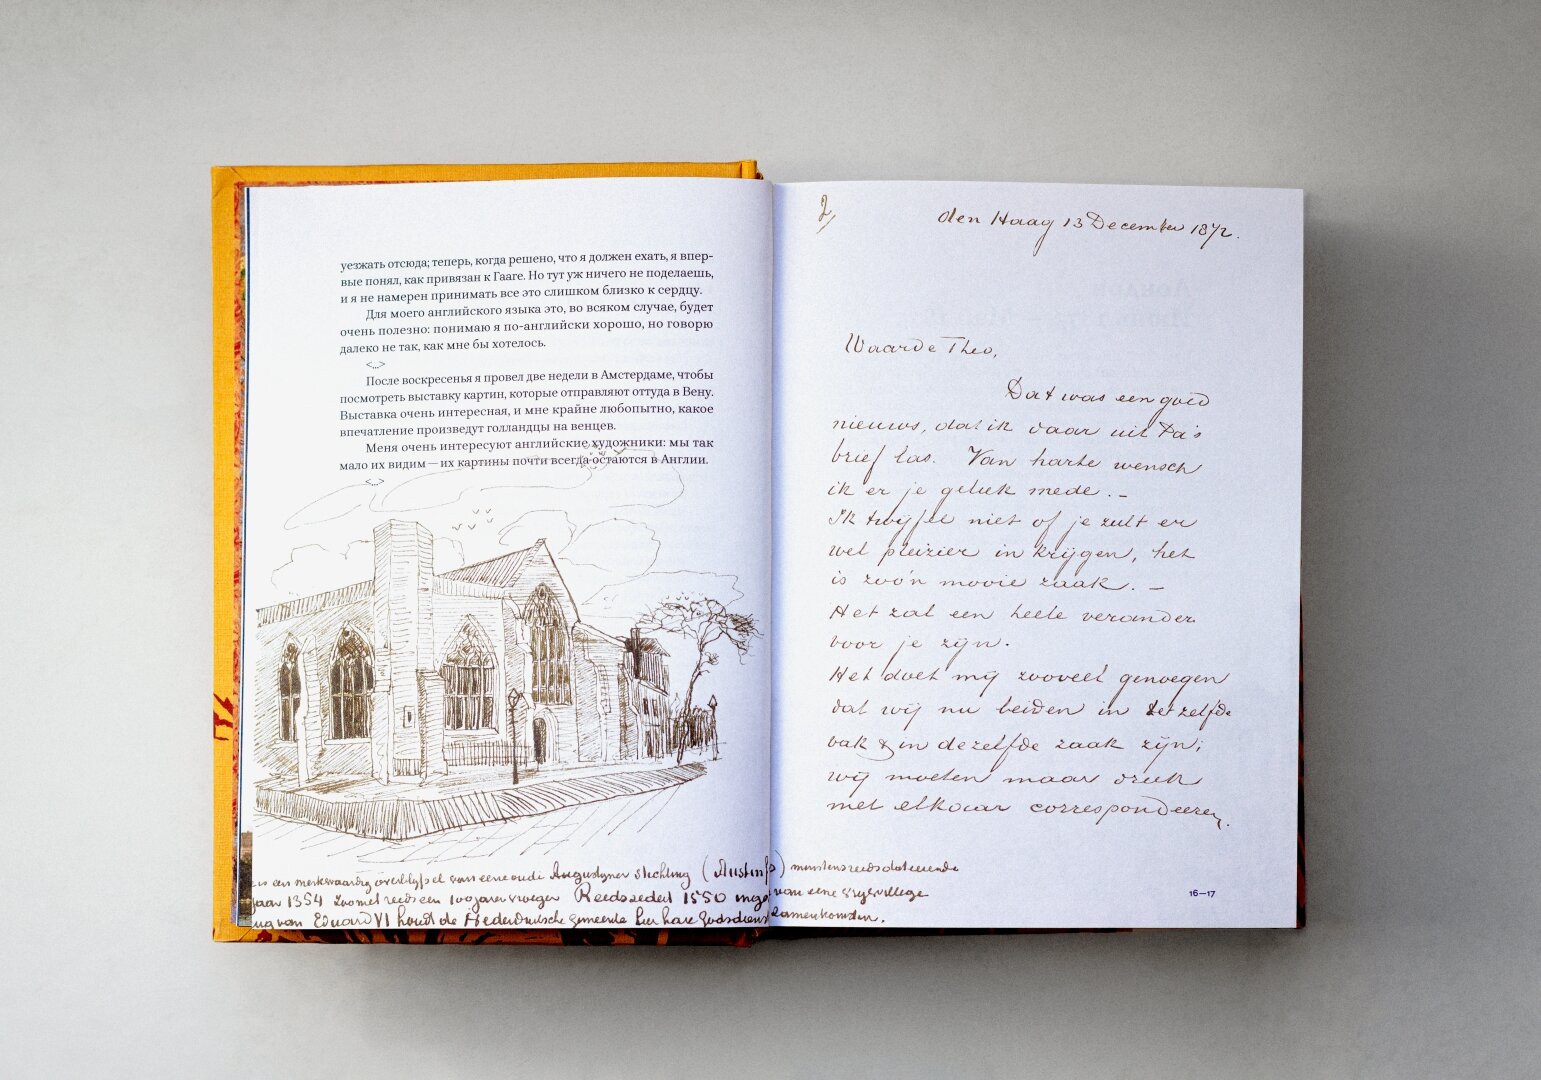 уезжать отсюда; теперь, когда решено, что я должен ехать, я впер-
вые понял, как привязан к Гааге. Но тут уж ничего не поделаешь,
и я не намерен принимать все это слишком близко к сердцу.
Для моего английского языка это, во всяком случае, будет
очень полезно: понимаю я по-английски хорошо, но говорю
далеко не так, как мне бы хотелось.
<...>
После воскресенья я провел две недели в Амстердаме, чтобы
посмотреть выставку картин, которые отправляют оттуда в Вену.
Выставка очень интересная, и мне крайне любопытно, какое
впечатление произведут голландцы на венцев.
Меня очень интересуют английские художники: мы так
мало их видим — их картины почти всегда остаются в Англии.
<...>
is een merkwaardig overblijfsel van eene oude Augustijner stichting (Austin
jaar 1354 zoo niet reeds een 100 jaar vroeger Reeds sedert 1550
van Eduard VI houdt de Nederduitsche gemeente hier hare Godsdienst
2
den Haag 13 December 1872.
Waarde Theo,
Dat was een goed
nieuws, dat ik daar uit Pa's
brief las. Van harte wensch
ik er je geluk mede. —
Ik twijfel niet of je zult er
wel pleizier in krijgen, het
is zoo'n mooie zaak. —
Het zal een heele verander
voor je zijn.
Het doet mij zooveel genoegen
dat wij nu beiden in hetzelfde
vak & in dezelfde zaak zijn;
wij moeten maar druk
met elkaar correspondeeren.
minstens reeds dateerende
van eene
zamenkomsten.
16–17